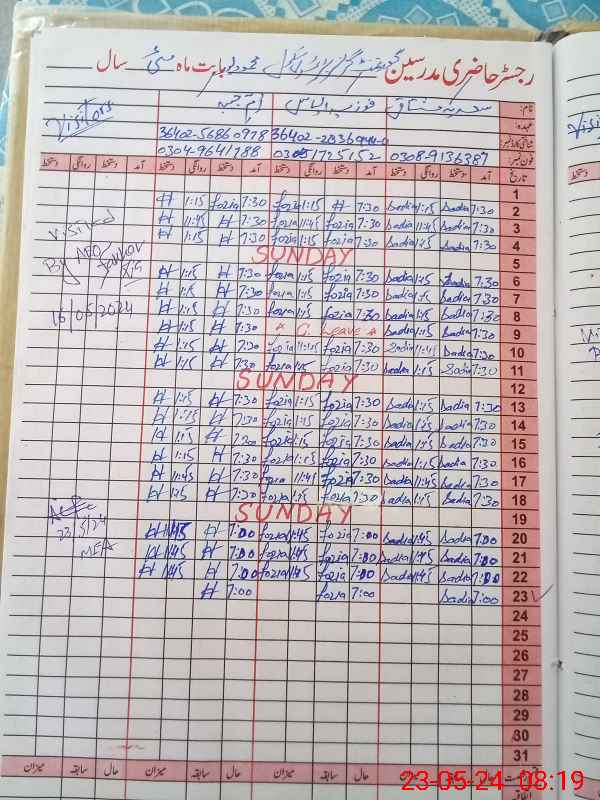 رجسٹر حاضری مدرسین گورنمنٹ گرلز پرائمری سکول بابت ماہ مئی سال
نام: سعدیہ مشتاق فوزیہ الیاس
Visitors
عہدہ:
شناختی کارڈ نمبر: 36402-56860978
فون نمبر: 0308-9136387 03051725152 0304-9641788
تاریخ آمد دستخط روانگی دستخط آمد دستخط روانگی دستخط آمد دستخط روانگی دستخط آمد دستخط روانگی دستخط
1
2 7:30 Sadia 1:15 Sadia 7:30 H 1:15 fozia 7:30 fozia 1:15 H
3 7:30 Sadia 11:45 Sadia 7:30 fozia 11:45 fozia 7:30 H 11:45 H
4 7:30 Sadia 1:15 Sadia 7:30 fozia 1:15 fozia 7:30 H 1:15 H
5 SUNDAY
Visited
By AEO
6 7:30 Sadia 1:15 Sadia 7:30 fozia 1:15 fozia 7:30 H 1:15 H
7 7:30 Sadia 1:15 Sadia 7:30 fozia 1:15 fozia 7:30 H 1:15 H
8 7:30 Sadia 1:15 Sadia 7:30 fozia 1:15 fozia 7:30 H 1:15 H
16/05/2024
9 7:30 Sadia 1:15 Sadia C. Leave 7:30 H 1:15 H
10 7:30 Sadia 11:45 Sadia 7:30 fozia 11:45 fozia 7:30 H 11:45 H
11 7:30 Sadia 1:15 Sadia 7:30 fozia 1:15 fozia 7:30 H 1:15 H
12 SUNDAY
13 7:30 Sadia 1:15 Sadia 7:30 fozia 1:15 fozia 7:30 H 1:15 H
14 7:30 Sadia 1:15 Sadia 7:30 fozia 1:15 fozia 7:30 H 1:15 H
15 7:30 Sadia 1:15 Sadia 7:30 fozia 1:15 fozia 7:30 H 1:15 H
16 7:30 Sadia 1:15 Sadia 7:30 fozia 1:15 fozia 7:30 H 1:15 H
17 7:30 Sadia 11:45 Sadia 7:30 fozia 11:45 fozia 7:30 H 11:45 H
18 7:30 Sadia 1:15 Sadia 7:30 fozia 1:15 fozia 7:30 H 1:15 H
19 SUNDAY
23/5/24
MEA
20 7:00 Sadia 1:45 Sadia 7:00 fozia 1:45 fozia 7:00 H 1:45 H
21 7:00 Sadia 1:45 Sadia 7:00 fozia 1:45 fozia 7:00 H 1:45 H
22 7:00 Sadia 1:45 Sadia 7:00 fozia 1:45 fozia 7:00 H 1:45 H
23 7:00 Sadia 7:00 fozia 7:00 H
24
25
26
27
28
29
30
31
حال سابقہ میزان حال سابقہ میزان حال سابقہ میزان
23-05-24 08:19